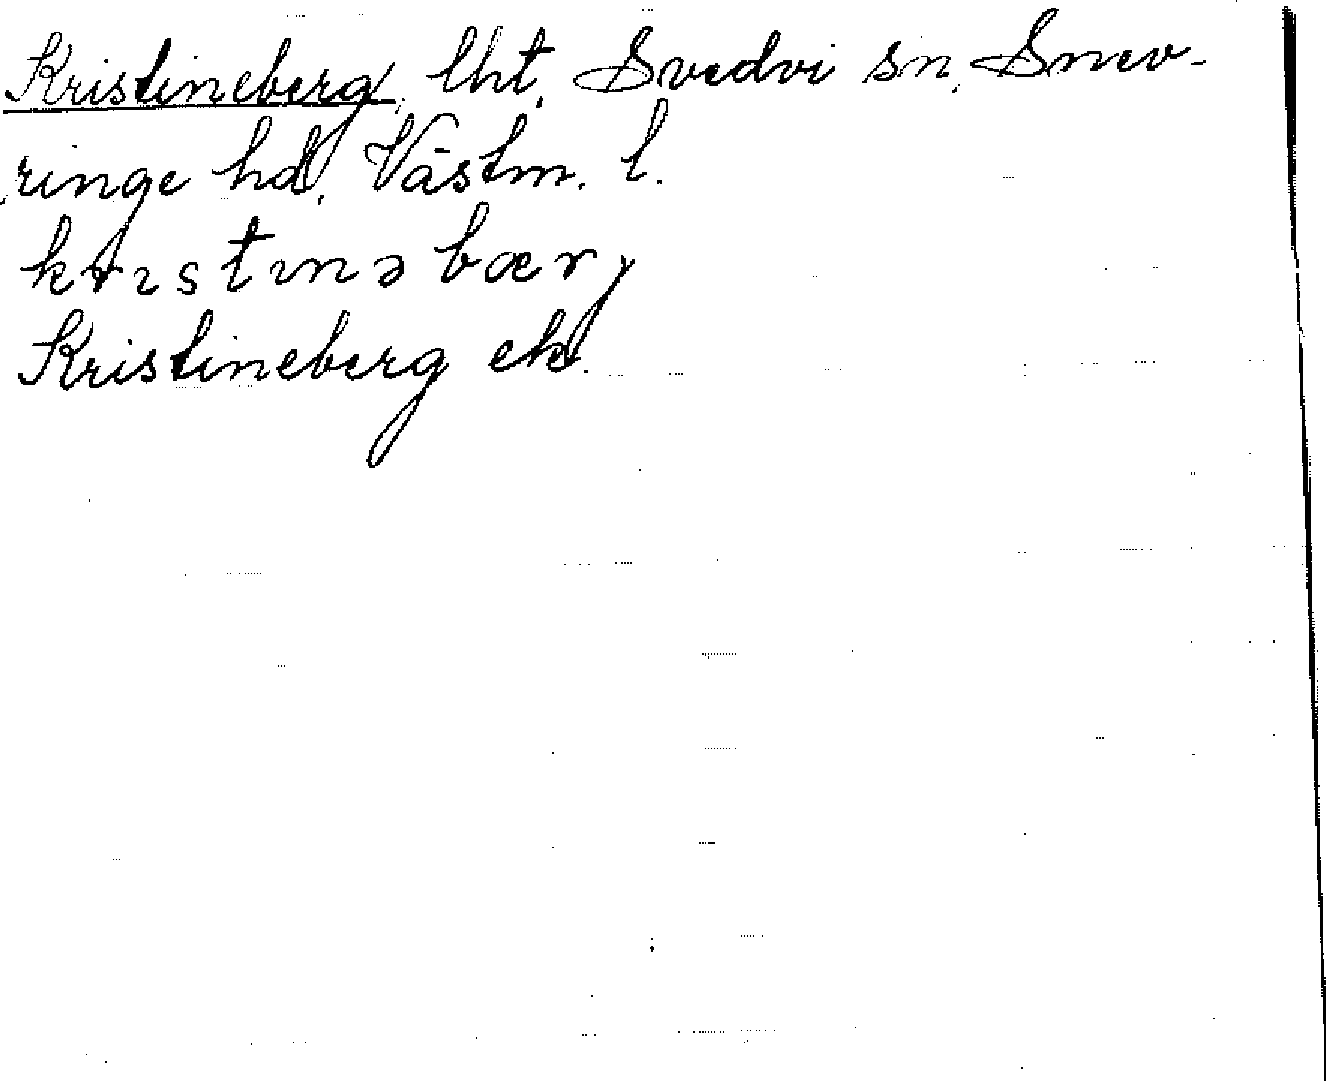 Kristineberg, lht, Svedvi sn, Snev-
ringe hd, Västm. l.
krıstınəbærj
Kristineberg ek.